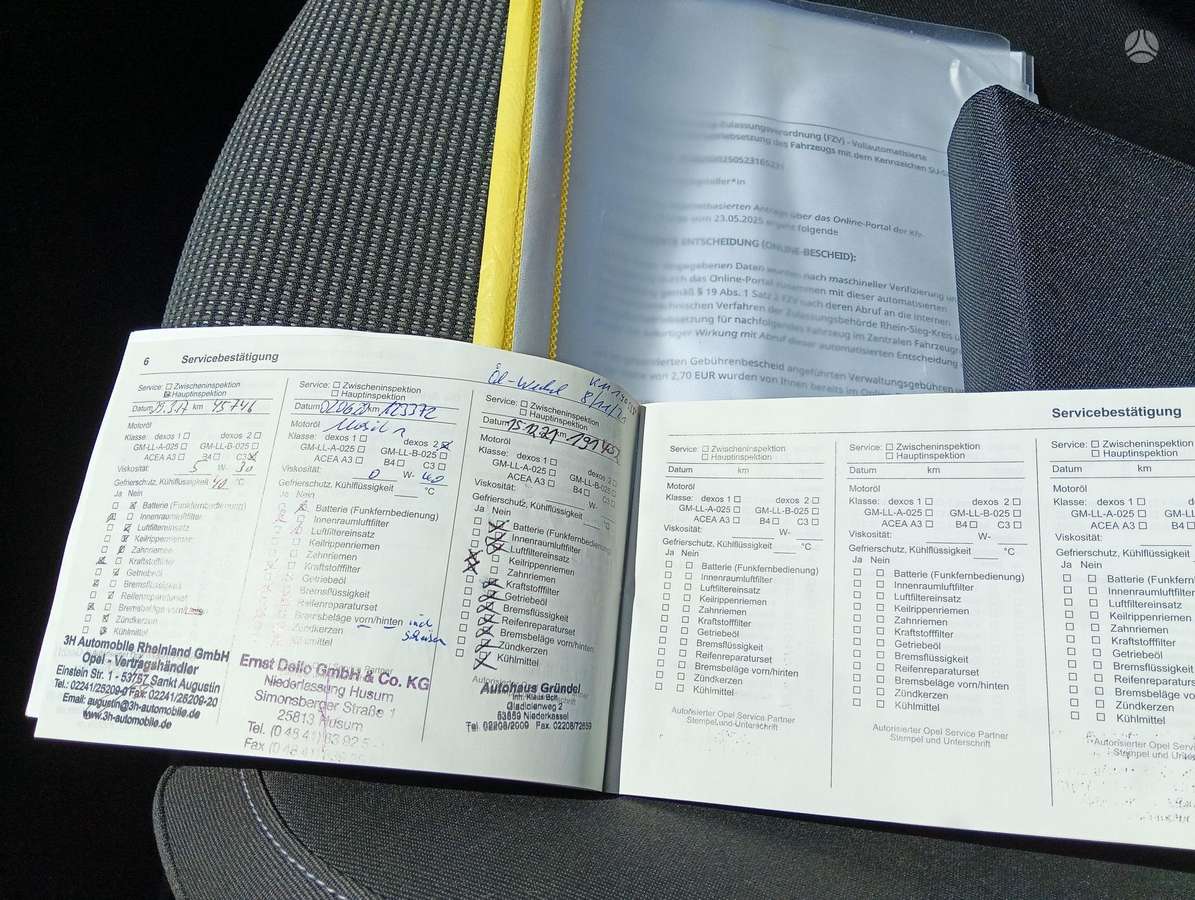 Zulassungsverordnung (FZV) - Vollautomatisierte
des Fahrzeugs mit dem Kennzeichen SU-
über das Online-Portal der Kfz-
vom 23.05.2025 ergeht folgende
ENTSCHEIDUNG (ONLINE-BESCHEID):
Daten wurden nach maschineller Verifizierung
durch das Online-Portal zusammen mit dieser automatisierten
gemäß § 19 Abs. 1 Satz 2 FZV nach deren Abruf an die internen
Verfahren der Zulassungsbehörde Rhein-Sieg-Kreis
für nachfolgendes Fahrzeug im Zentralen Fahrzeug
Wirkung mit Abruf dieser automatisierten Entscheidung
Gebührenbescheid angeführten Verwaltungsgebühren
von 2,70 EUR wurden von Ihnen bereits im
6 Servicebestätigung
Öl-Wechsel KM
Service: Zwischeninspektion
Hauptinspektion
Datum km 45746
Motoröl
Klasse: dexos 1 dexos 2
GM-LL-A-025 GM-LL-B-025
ACEA A3 B4 C3
Viskosität: 5 W- 30
Gefrierschutz, Kühlflüssigkeit 40 °C
Ja Nein
Batterie (Funkfernbedienung)
Innenraumluftfilter
Luftfiltereinsatz
Keilrippenriemen
Zahnriemen
Kraftstofffilter
Getriebeöl
Bremsflüssigkeit
Reifenreparaturset
Bremsbeläge vorn/hinten
Zündkerzen
Kühlmittel
3H Automobile Rheinland GmbH
Opel - Vertragshändler
Einstein Str. 1 - 53757 Sankt Augustin
Tel.: 02241/25209-0 Fax: 02241/25209-20
Email: augustin@3h-automobile.de
www.3h-automobile.de
Service: Zwischeninspektion
Hauptinspektion
Datum km 123372
Motoröl
Klasse: dexos 1 dexos 2
GM-LL-A-025 GM-LL-B-025
ACEA A3 B4 C3
Viskosität: 0 W- 40
Gefrierschutz, Kühlflüssigkeit °C
Ja Nein
Batterie (Funkfernbedienung)
Innenraumluftfilter
Luftfiltereinsatz
Keilrippenriemen
Zahnriemen
Kraftstofffilter
Getriebeöl
Bremsflüssigkeit
Reifenreparaturset
Bremsbeläge vorn/hinten
Zündkerzen
Kühlmittel
Ernst Dello GmbH & Co. KG
Niederlassung Husum
Simonsberger Straße 1
25813 Husum
Service: Zwischeninspektion
Hauptinspektion
Datum 15.12.21 km
Motoröl
Klasse: dexos 1 dexos 2
GM-LL-A-025 GM-LL-B-025
ACEA A3 B4
Viskosität: W-
Gefrierschutz, Kühlflüssigkeit °C
Ja Nein
Batterie (Funkfernbedienung)
Innenraumluftfilter
Luftfiltereinsatz
Keilrippenriemen
Zahnriemen
Kraftstofffilter
Getriebeöl
Bremsflüssigkeit
Reifenreparaturset
Bremsbeläge vorn/hinten
Zündkerzen
Kühlmittel
Autohaus Gründel
Gladiolenweg 2
53859 Niederkassel
Tel. 02208/2009 Fax. 02208/72659
Servicebestätigung
Service: Zwischeninspektion
Hauptinspektion
Datum km
Motoröl
Klasse: dexos 1 dexos 2
GM-LL-A-025 GM-LL-B-025
ACEA A3 B4 C3
Viskosität: W-
Gefrierschutz, Kühlflüssigkeit °C
Ja Nein
Batterie (Funkfernbedienung)
Innenraumluftfilter
Luftfiltereinsatz
Keilrippenriemen
Zahnriemen
Kraftstofffilter
Getriebeöl
Bremsflüssigkeit
Reifenreparaturset
Bremsbeläge vorn/hinten
Zündkerzen
Kühlmittel
Autorisierter Opel Service Partner
Stempel und Unterschrift
Service: Zwischeninspektion
Hauptinspektion
Datum km
Motoröl
Klasse: dexos 1 dexos 2
GM-LL-A-025 GM-LL-B-025
ACEA A3 B4 C3
Viskosität: W-
Gefrierschutz, Kühlflüssigkeit °C
Ja Nein
Batterie (Funkfernbedienung)
Innenraumluftfilter
Luftfiltereinsatz
Keilrippenriemen
Zahnriemen
Kraftstofffilter
Getriebeöl
Bremsflüssigkeit
Reifenreparaturset
Bremsbeläge vorn/hinten
Zündkerzen
Kühlmittel
Autorisierter Opel Service Partner
Stempel und Unterschrift
Service: Zwischeninspektion
Hauptinspektion
Datum km
Motoröl
Klasse: dexos 1
GM-LL-A-025 GM-L
ACEA A3 B4
Viskosität:
Gefrierschutz, Kühlflüssigkeit
Ja Nein
Batterie (Funkfernb
Innenraumluftfilter
Luftfiltereinsatz
Keilrippenriemen
Zahnriemen
Kraftstofffilter
Getriebeöl
Bremsflüssigkeit
Reifenreparaturs
Bremsbeläge vo
Zündkerzen
Kühlmittel
Autorisierter Opel Servi
Stempel und Unters